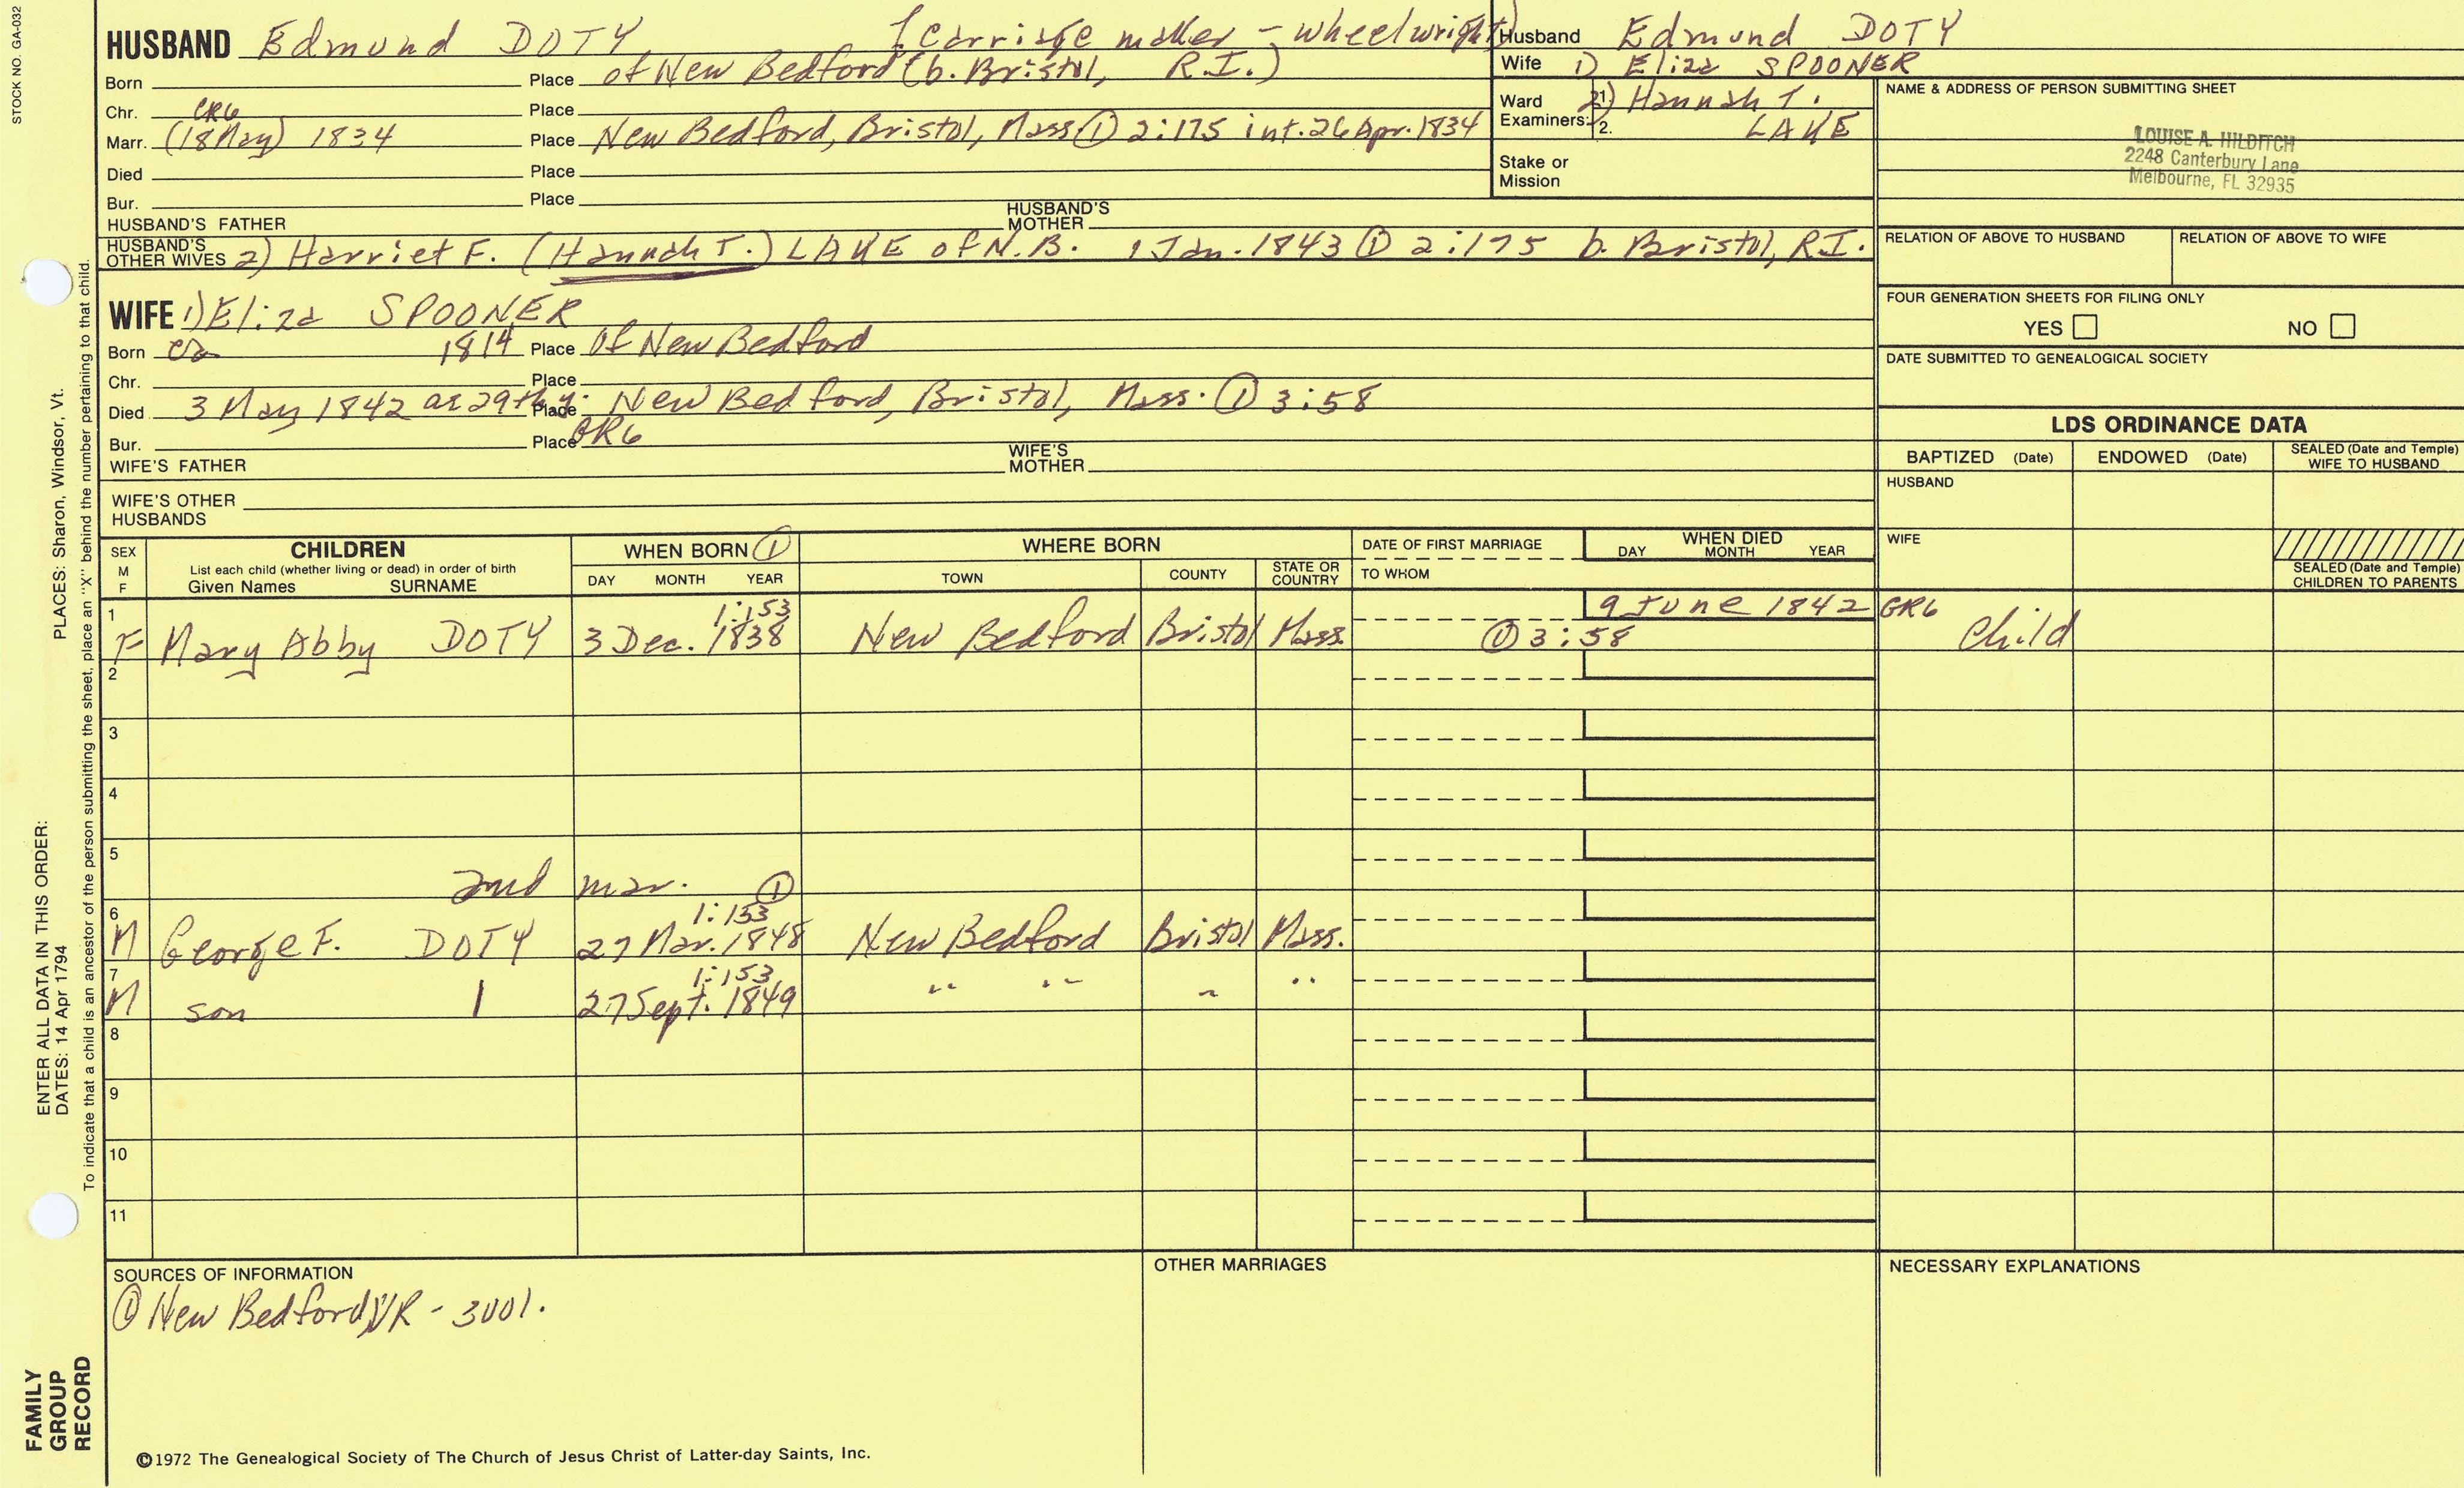 STOCK NO. GA-032
HUSBAND Edmund DOTY (carriage maker - wheelwright)
Born Place of New Bedford (b. Bristol, R.I.)
Chr. CR6 Place
Marr. (18 May) 1834 Place New Bedford, Bristol, Mass. ① 2:175 int. 26 Apr. 1834
Died Place
Bur. Place
HUSBAND'S FATHER HUSBAND'S MOTHER
HUSBAND'S OTHER WIVES 2) Harriet F. (Hannah T.) LAKE of N.B. 1 Jan. 1843 ① 2:175 b. Bristol, R.I.
WIFE 1) Eliza SPOONER
Born ca 1814 Place Of New Bedford
Chr. Place
Died 3 May 1842 ae 29th y. Place New Bedford, Bristol, Mass. ① 3:58
Bur. Place GR6
WIFE'S FATHER WIFE'S MOTHER
WIFE'S OTHER HUSBANDS
Husband Edmund DOTY
Wife 1) Eliza SPOONER
Ward Examiners: 1. 2. 2) Hannah T.
LAKE
Stake or Mission
NAME & ADDRESS OF PERSON SUBMITTING SHEET
LOUISE A. HILDITCH
2248 Canterbury Lane
Melbourne, FL 32935
RELATION OF ABOVE TO HUSBAND RELATION OF ABOVE TO WIFE
FOUR GENERATION SHEETS FOR FILING ONLY
YES NO
DATE SUBMITTED TO GENEALOGICAL SOCIETY
LDS ORDINANCE DATA
BAPTIZED (Date) ENDOWED (Date) SEALED (Date and Temple) WIFE TO HUSBAND
HUSBAND
WIFE
SEALED (Date and Temple) CHILDREN TO PARENTS
SEX M F CHILDREN List each child (whether living or dead) in order of birth Given Names SURNAME
WHEN BORN ① DAY MONTH YEAR
WHERE BORN TOWN COUNTY STATE OR COUNTRY
DATE OF FIRST MARRIAGE TO WHOM
WHEN DIED DAY MONTH YEAR
1 1:153 9 June 1842 GR6
F Mary Abby DOTY 3 Dec. 1838 New Bedford Bristol Mass. ① 3:58 Child
2
3
4
5
2nd mar. ①
6 1:153
M George F. DOTY 27 Mar. 1848 New Bedford Bristol Mass.
7 1:153
M son | 27 Sept. 1849 " " " "
8
9
10
11
SOURCES OF INFORMATION
① New Bedford, VR - 3001.
OTHER MARRIAGES
NECESSARY EXPLANATIONS
©1972 The Genealogical Society of The Church of Jesus Christ of Latter-day Saints, Inc.
PLACES: Sharon, Windsor, Vt.
ENTER ALL DATA IN THIS ORDER:
DATES: 14 Apr 1794
To indicate that a child is an ancestor of the person submitting the sheet, place an "X" behind the number pertaining to that child.
FAMILY
GROUP
RECORD